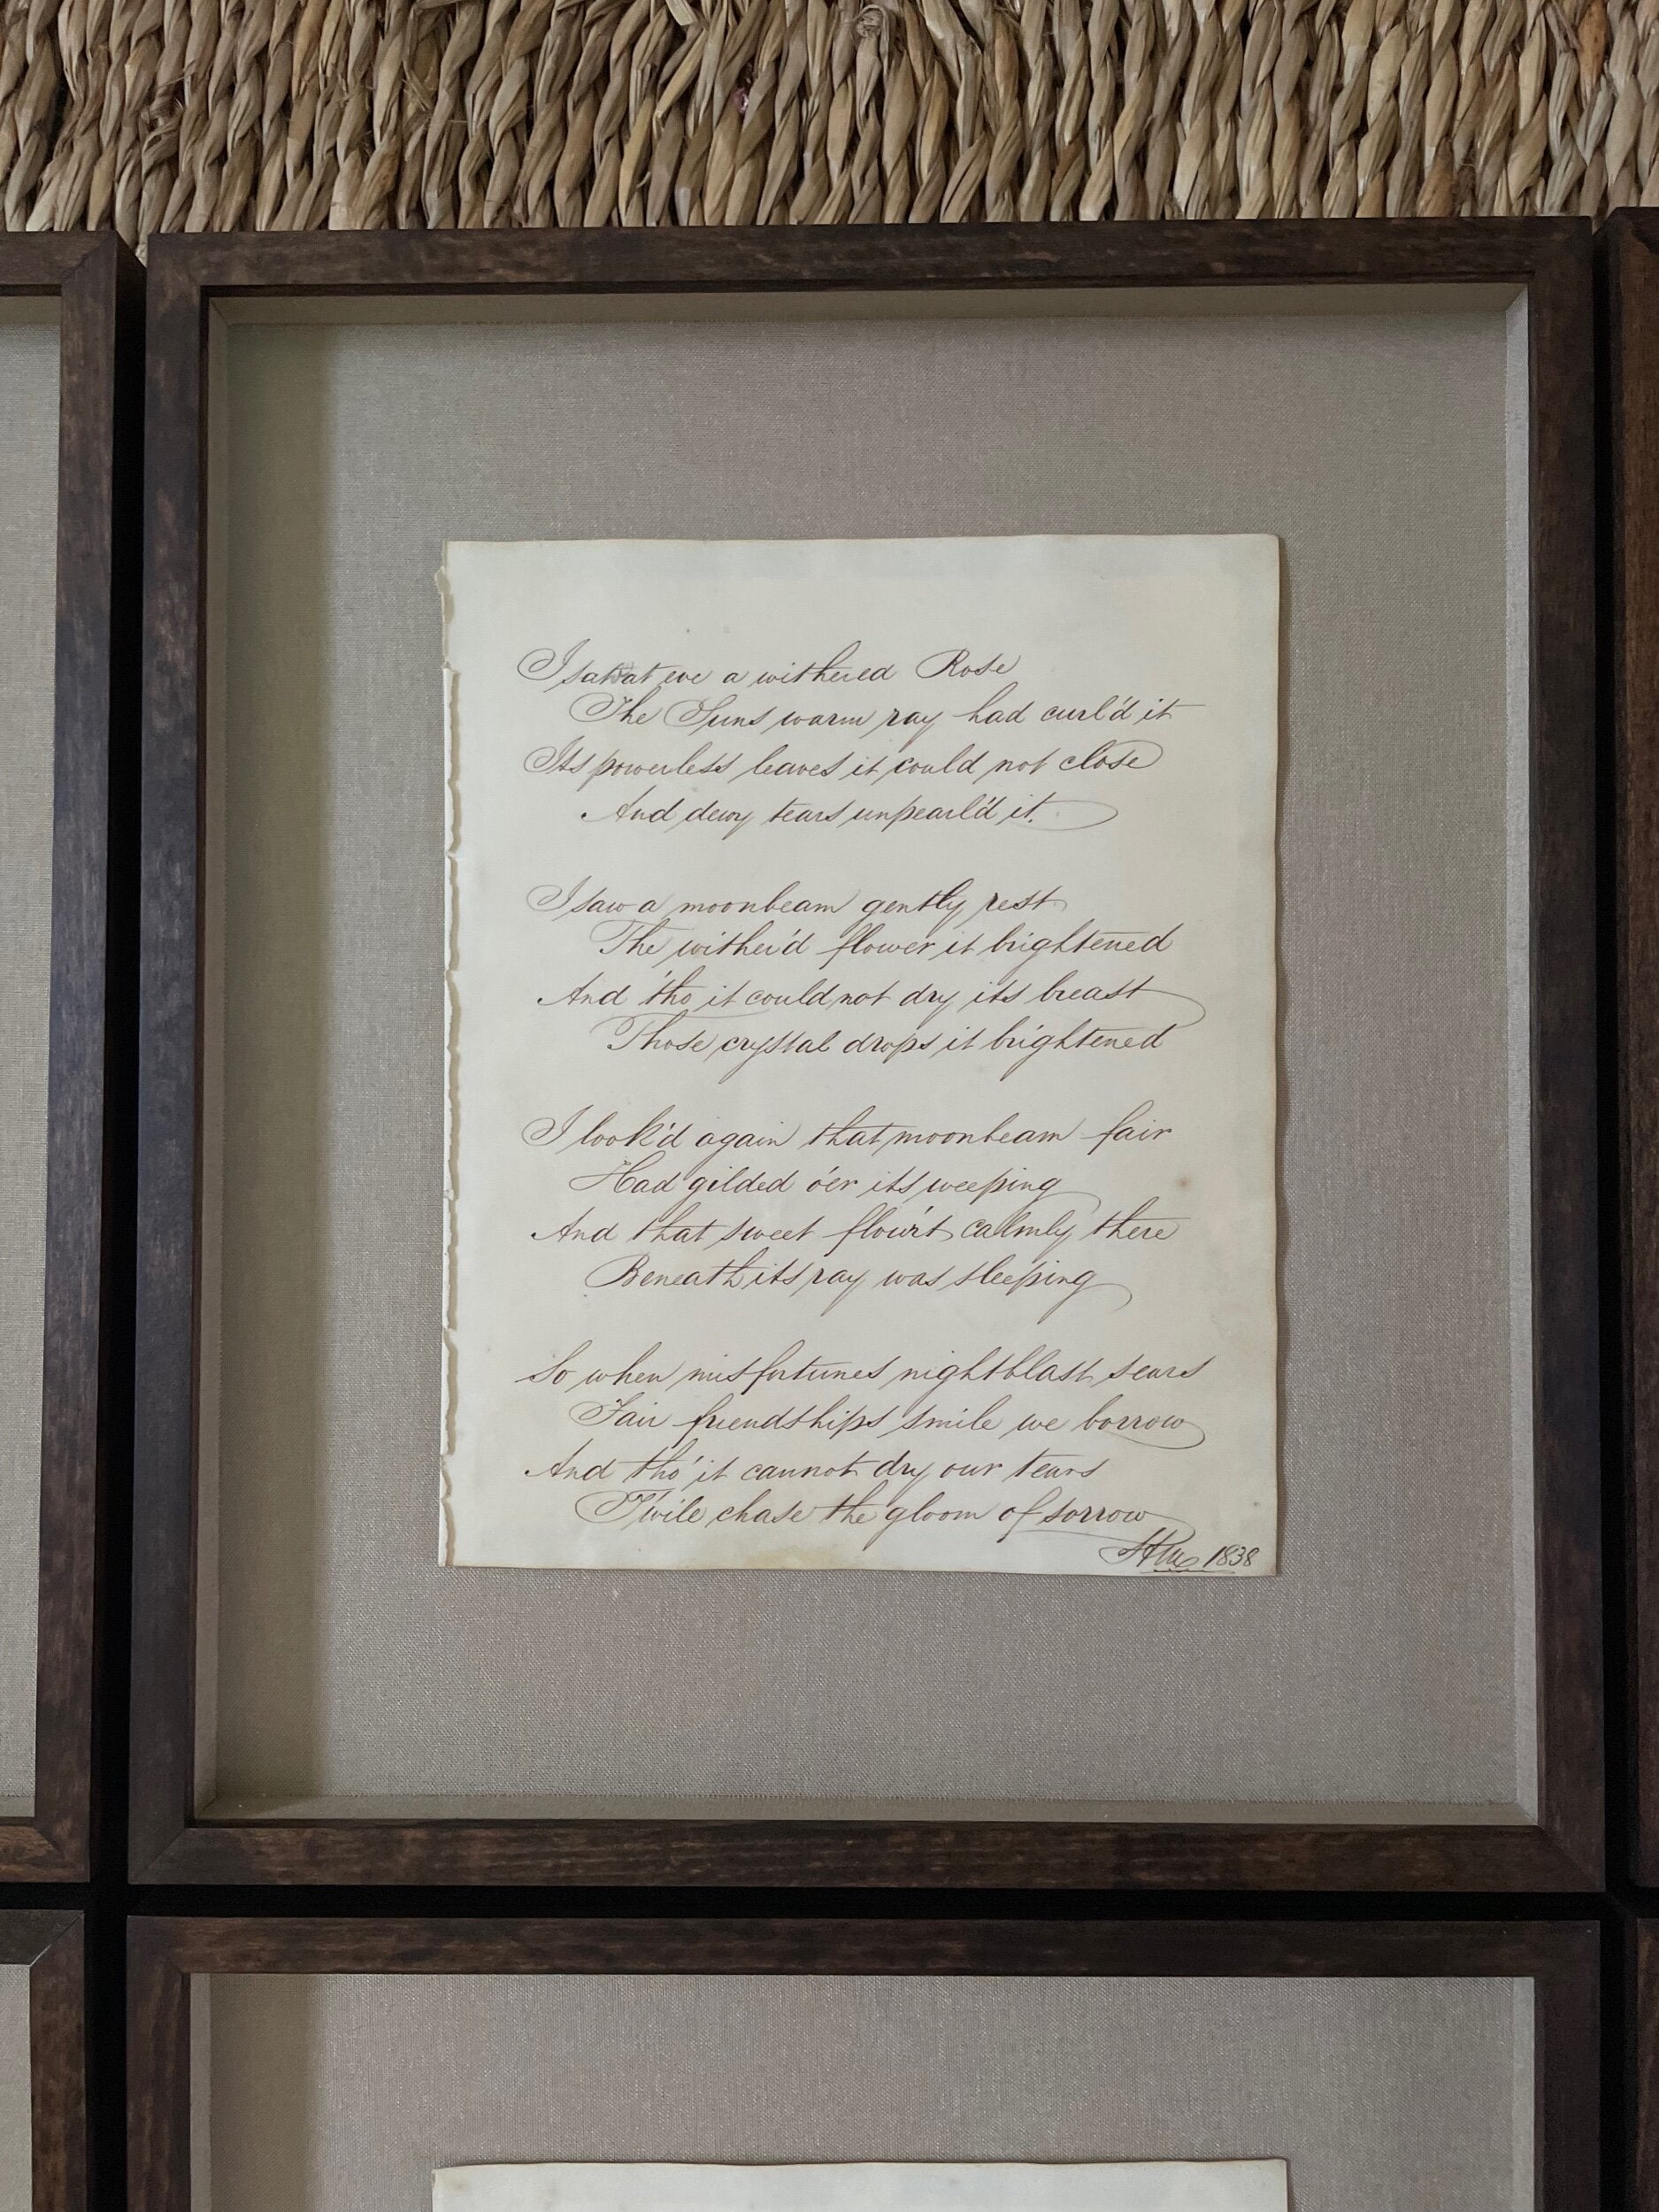 I saw at eve a withered Rose
The Suns warm ray had curl'd it
Its powerless leaves it could not close
And dewy tears unpearl'd it.
I saw a moonbeam gently rest
The wither'd flower it brightened
And 'tho it could not dry its breast
Those crystal drops it brightened
I look'd again that moonbeam fair
Had gilded o'er its weeping
And that sweet flow'r't calmly there
Beneath its ray was sleeping
So when misfortunes nightblast sears
Fair friendships smile we borrow
And tho' it cannot dry our tears
T'wile chase the gloom of sorrow
1838